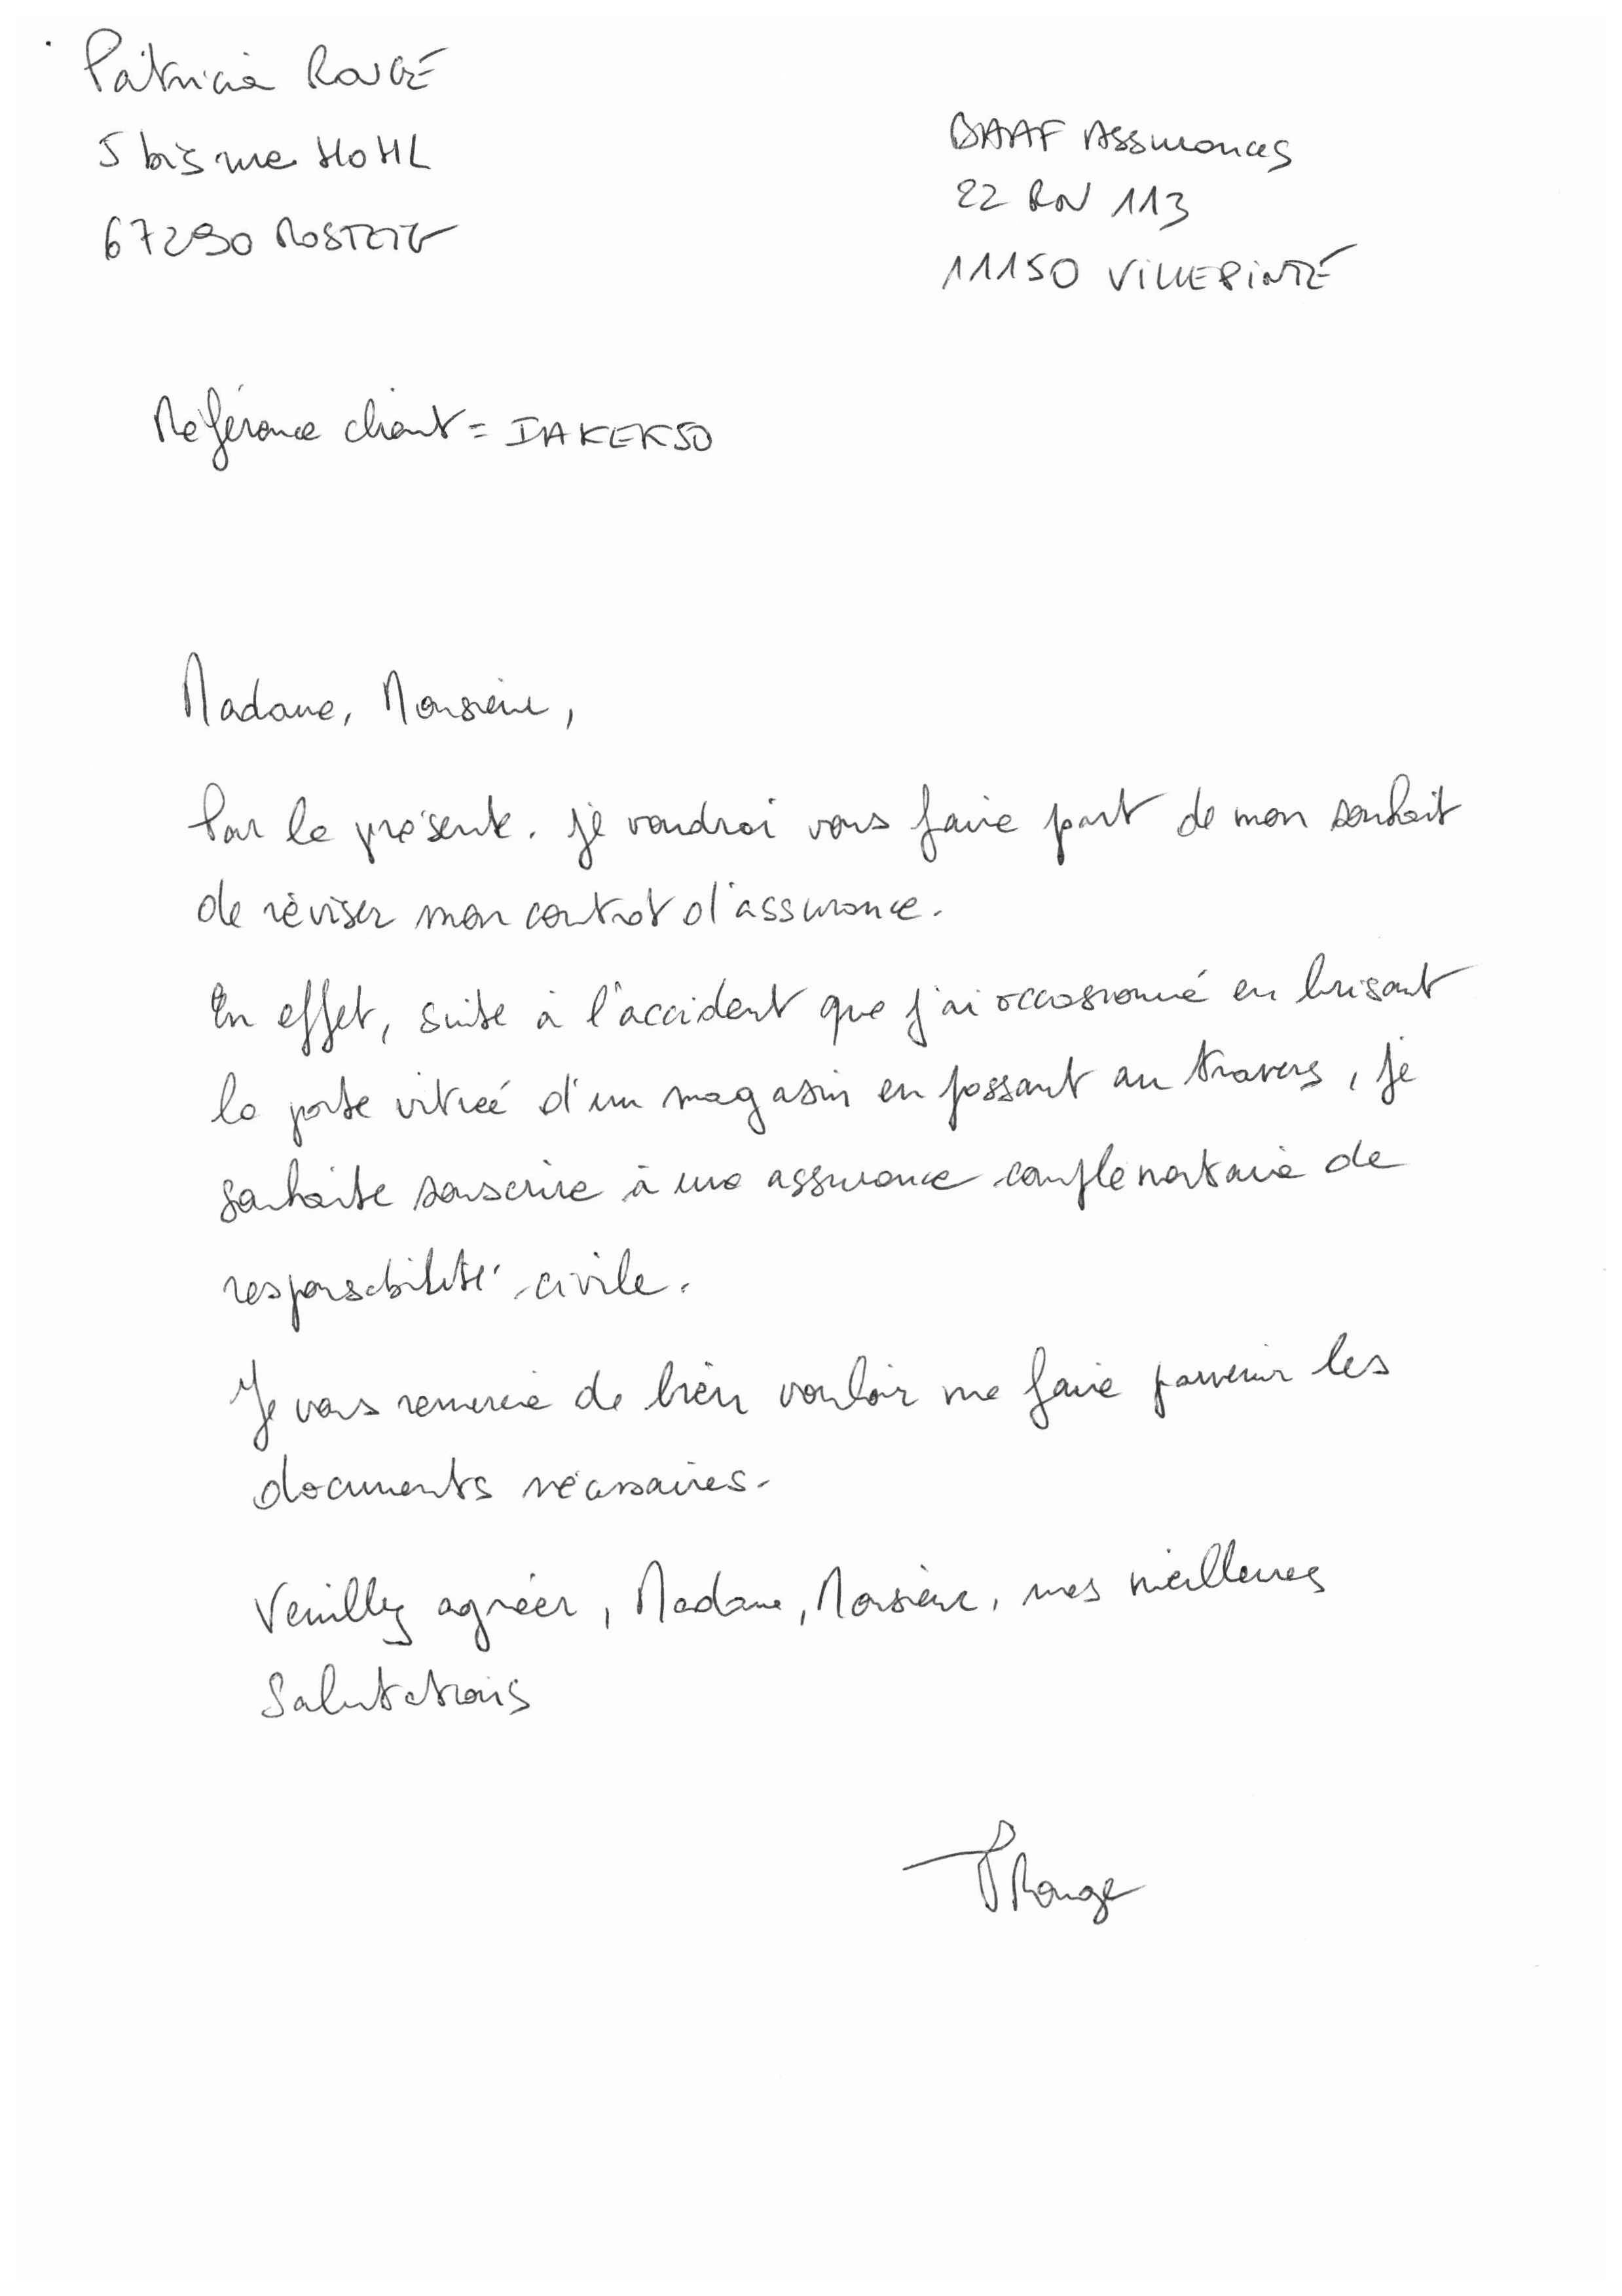 Patricia ROUGÉ
5 bis rue HOHL
67290 ROSTEIG
BAAF Assurances
22 RN 113
11150 VILLEPINTE
Référence client = IAKEK50
Madame, Monsieur,
Par la présente. je voudrai vous faire part de mon souhait
de réviser mon contrat d'assurance.
En effet, suite à l'accident que j'ai occasionné en brisant
la porte vitrée d'un magasin en passant au travers, je
souhaite souscrire à une assurance complémentaire de
responsabilité civile.
Je vous remercie de bien vouloir me faire parvenir les
documents nécessaires.
Veuillez agréer, Madame, Monsieur, mes meilleures
Salutations
PRouge